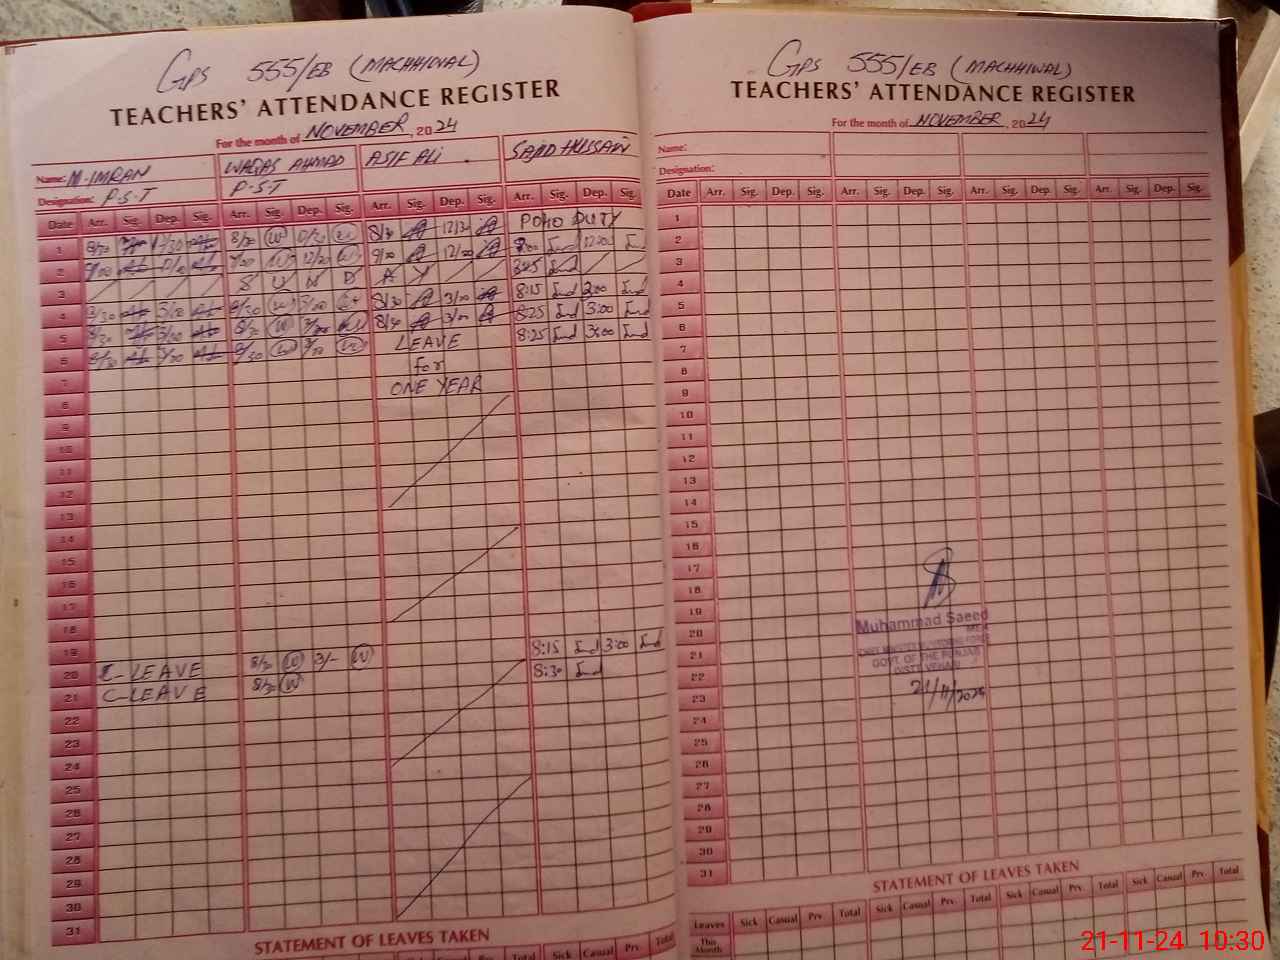 GPS 555/EB (MACHHIWAL)
TEACHERS' ATTENDANCE REGISTER
For the month of NOVEMBER, 2024
Name: M-IMRAN WAQAS AHMAD ASIF ALI SAJID HUSSAIN
Designation: P.S.T P.S.T
Date Arr. Sig. Dep. Sig. Arr. Sig. Dep. Sig. Arr. Sig. Dep. Sig. Arr. Sig. Dep. Sig.
1 8/30 8/30 8/30 12/30 POLIO DUTY
2 7/00 7/00 12/00 12:00
3 S U N D A Y
4 8/30 3/00 8/30 3/00 8/30 3/00 8:15 3:00
5 8/30 3/00 8/30 8/30 3/00 8:25 3:00
6 8/30 3/00 8/30 LEAVE 8:25 3:00
7 for
8 ONE YEAR
9
10
11
12
13
14
15
16
17
18
19
20 C-LEAVE 8/30 3/- 8:15 3:00
21 C-LEAVE 8/30 8:30
22
23
24
25
26
27
28
29
30
31
STATEMENT OF LEAVES TAKEN
Sick Casual Prv. Total
GPS 555/EB (MACHHIWAL)
TEACHERS' ATTENDANCE REGISTER
For the month of NOVEMBER, 2024
Name:
Designation:
Date Arr. Sig. Dep. Sig. Arr. Sig. Dep. Sig. Arr. Sig. Dep. Sig. Arr. Sig. Dep. Sig.
1
2
3
4
5
6
7
8
9
10
11
12
13
14
15
16
17
18
19
20
21
22
23
24
25
26
27
28
29
30
31
Muhammad Saeed
GOVT. OF THE PUNJAB
DISTT. VEHARI
21/11/2024
STATEMENT OF LEAVES TAKEN
Leaves Sick Casual Prv. Total Sick Casual Prv. Total Sick Casual Prv. Total
This Month
21-11-24 10:30